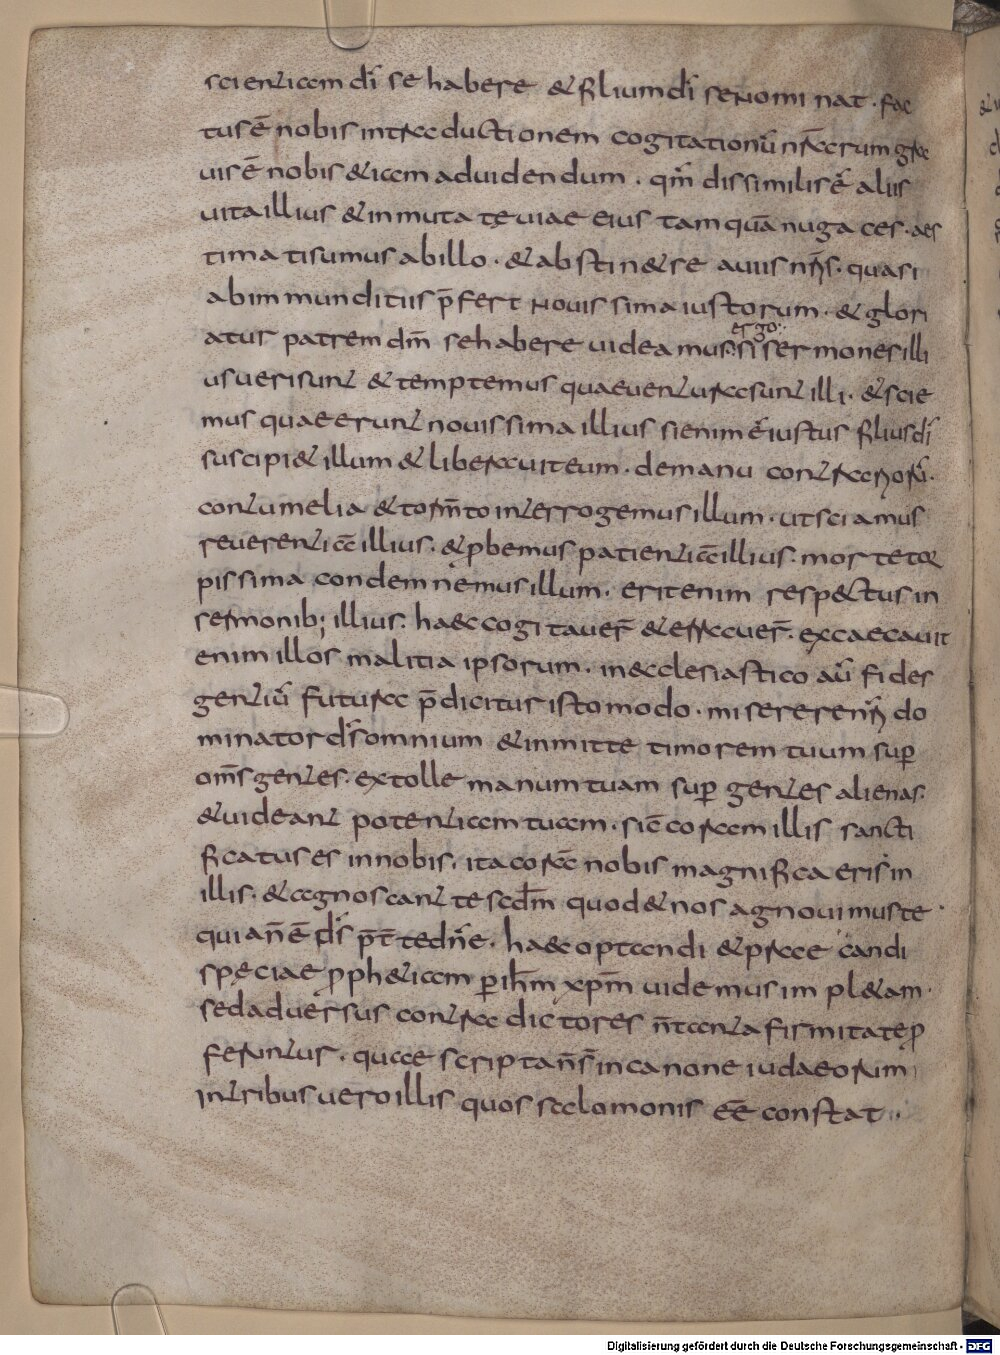 scientiam dī se habere & filium dī se nominat. fac
tus ē nobis in traductionem cogitationū nr̄arum gra
uis ē nobis & iam ad uidendum. qm̄ dissimilis ē aliis
uita illius & inmutatę uiae eius tamquā nugaces. aes
timati sumus ab illo. & abstin& se a uiis nr̄is. quasi
ab immunditiis p̄fert nouissima iustorum. & glori
atur patrem dm̄ se habere uideamus. si ergo sermones illi
us ueri sunt & temptemus quae uentura sunt illi. & scie
mus quae erunt nouissima illius si enim ē iustus filius dī
suscipi& illum & liberauit eum. de manu contrariorū.
contumelia & torm̄to interrogemus illum. ut sciamus
reuerentiā illius. & p̱bemus patientiā illius. morte tor
pissima condemnemus illum. erit enim respectus in
sermonib; illius. haec cogitauer̄ & erraver̄. excaecauit
enim illos malitia ipsorum. in ecclesiastico aū fides
gentiū futura p̄dicitur isto modo. miserere nr̄i do
minator dś omnium & inmitte timorem tuum sup̱
om̄s gentes. extolle manum tuam sup̱ gentes alienas.
& uideant potentiam tuam. sic̄ coram illis sancti
ficatus es in nobis. ita corā nobis magnificaeris in
illis. & agnoscant te scdm̄ quod & nos agnouimus te
quia n̄ ē dś p̄t te dn̄e. haec optandi & p̱recandi
speciae p̱ph&iam p̱ ih̄m xp̄m uidemus impl&am.
sed aduersus contradictores n̄ tanta firmitate p̱
feruntur. quae scripta n̄ s̄ in canone iudaeorum
in tribus uero illis quos salomonis eē constat..